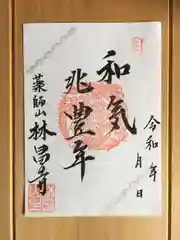 和気
兆豊年
薬師山林昌寺
令和 年
月 日